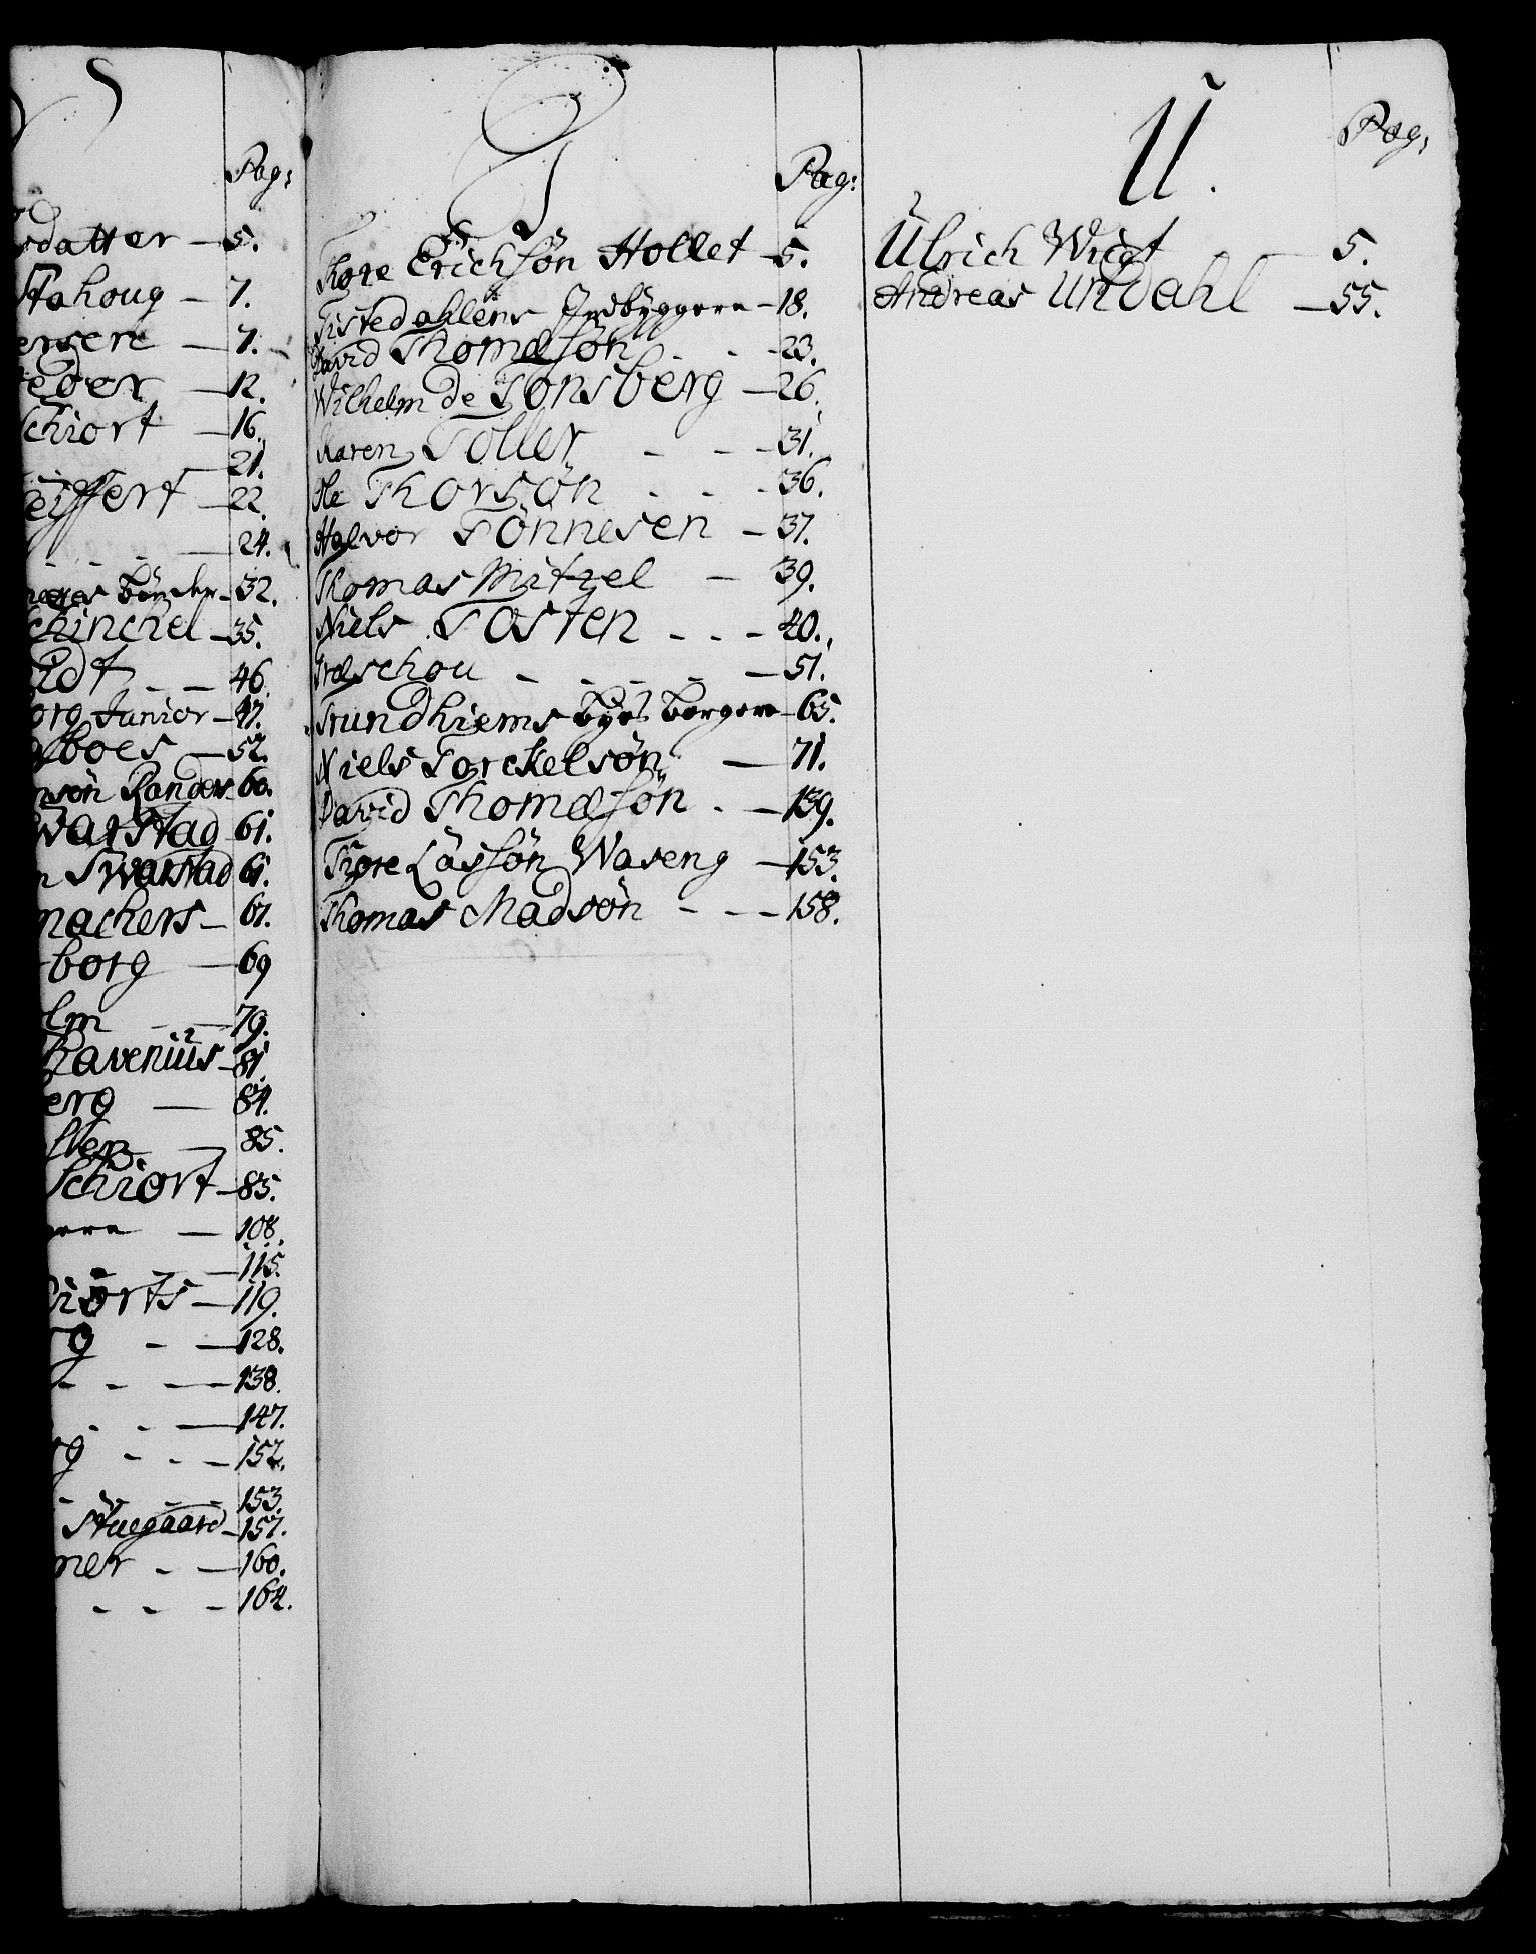 Pag:
sdatter – 5.
Stahoug – 7.
– 7.
– 12.
Schiort – 16.
– 21.
eiffert – 22.
– 24.
– 32.
Schinchel – 35.
idt – – 46.
org Junior – 47.
boes – 52.
nsön Randers – 60.
warstad – 61.
n Swarstad 61.
machers – 67.
borg – 69
olm – – 79.
Ravenius – 81.
erg – 84.
– 85.
Schiort – 85.
– 108.
– – 115.
hiorts – 119.
rg – – 128.
– – – 138.
– – – 147.
rg – – – 152.
– – – 153.
Stuegaard – 157.
mer – – 160.
– – – 164.
T
Pag:
Thore Erichsön Hollet – 5.
Tistedahlens Indbyggere – 18.
David Thomæsön – – – 23.
Wilhelm de Tonsberg – 26.
Karen Toller – – – 31.
Ole Thorsön – – – 36.
Halvor Tönnesen – 37.
Thomas Mitzel – 39.
Niels Tosten – – – 40.
Træschou – – – – – 51.
Trundhiems byes borgere – 65.
Niels Torckelsön – 71.
David Thomæsön – – 139.
Thore Lassön Waseng – 153.
Thomas Madsön – – – 158.
U.
Pag:
Ulrich Wigt 5.
Andreas Undahl – 55.